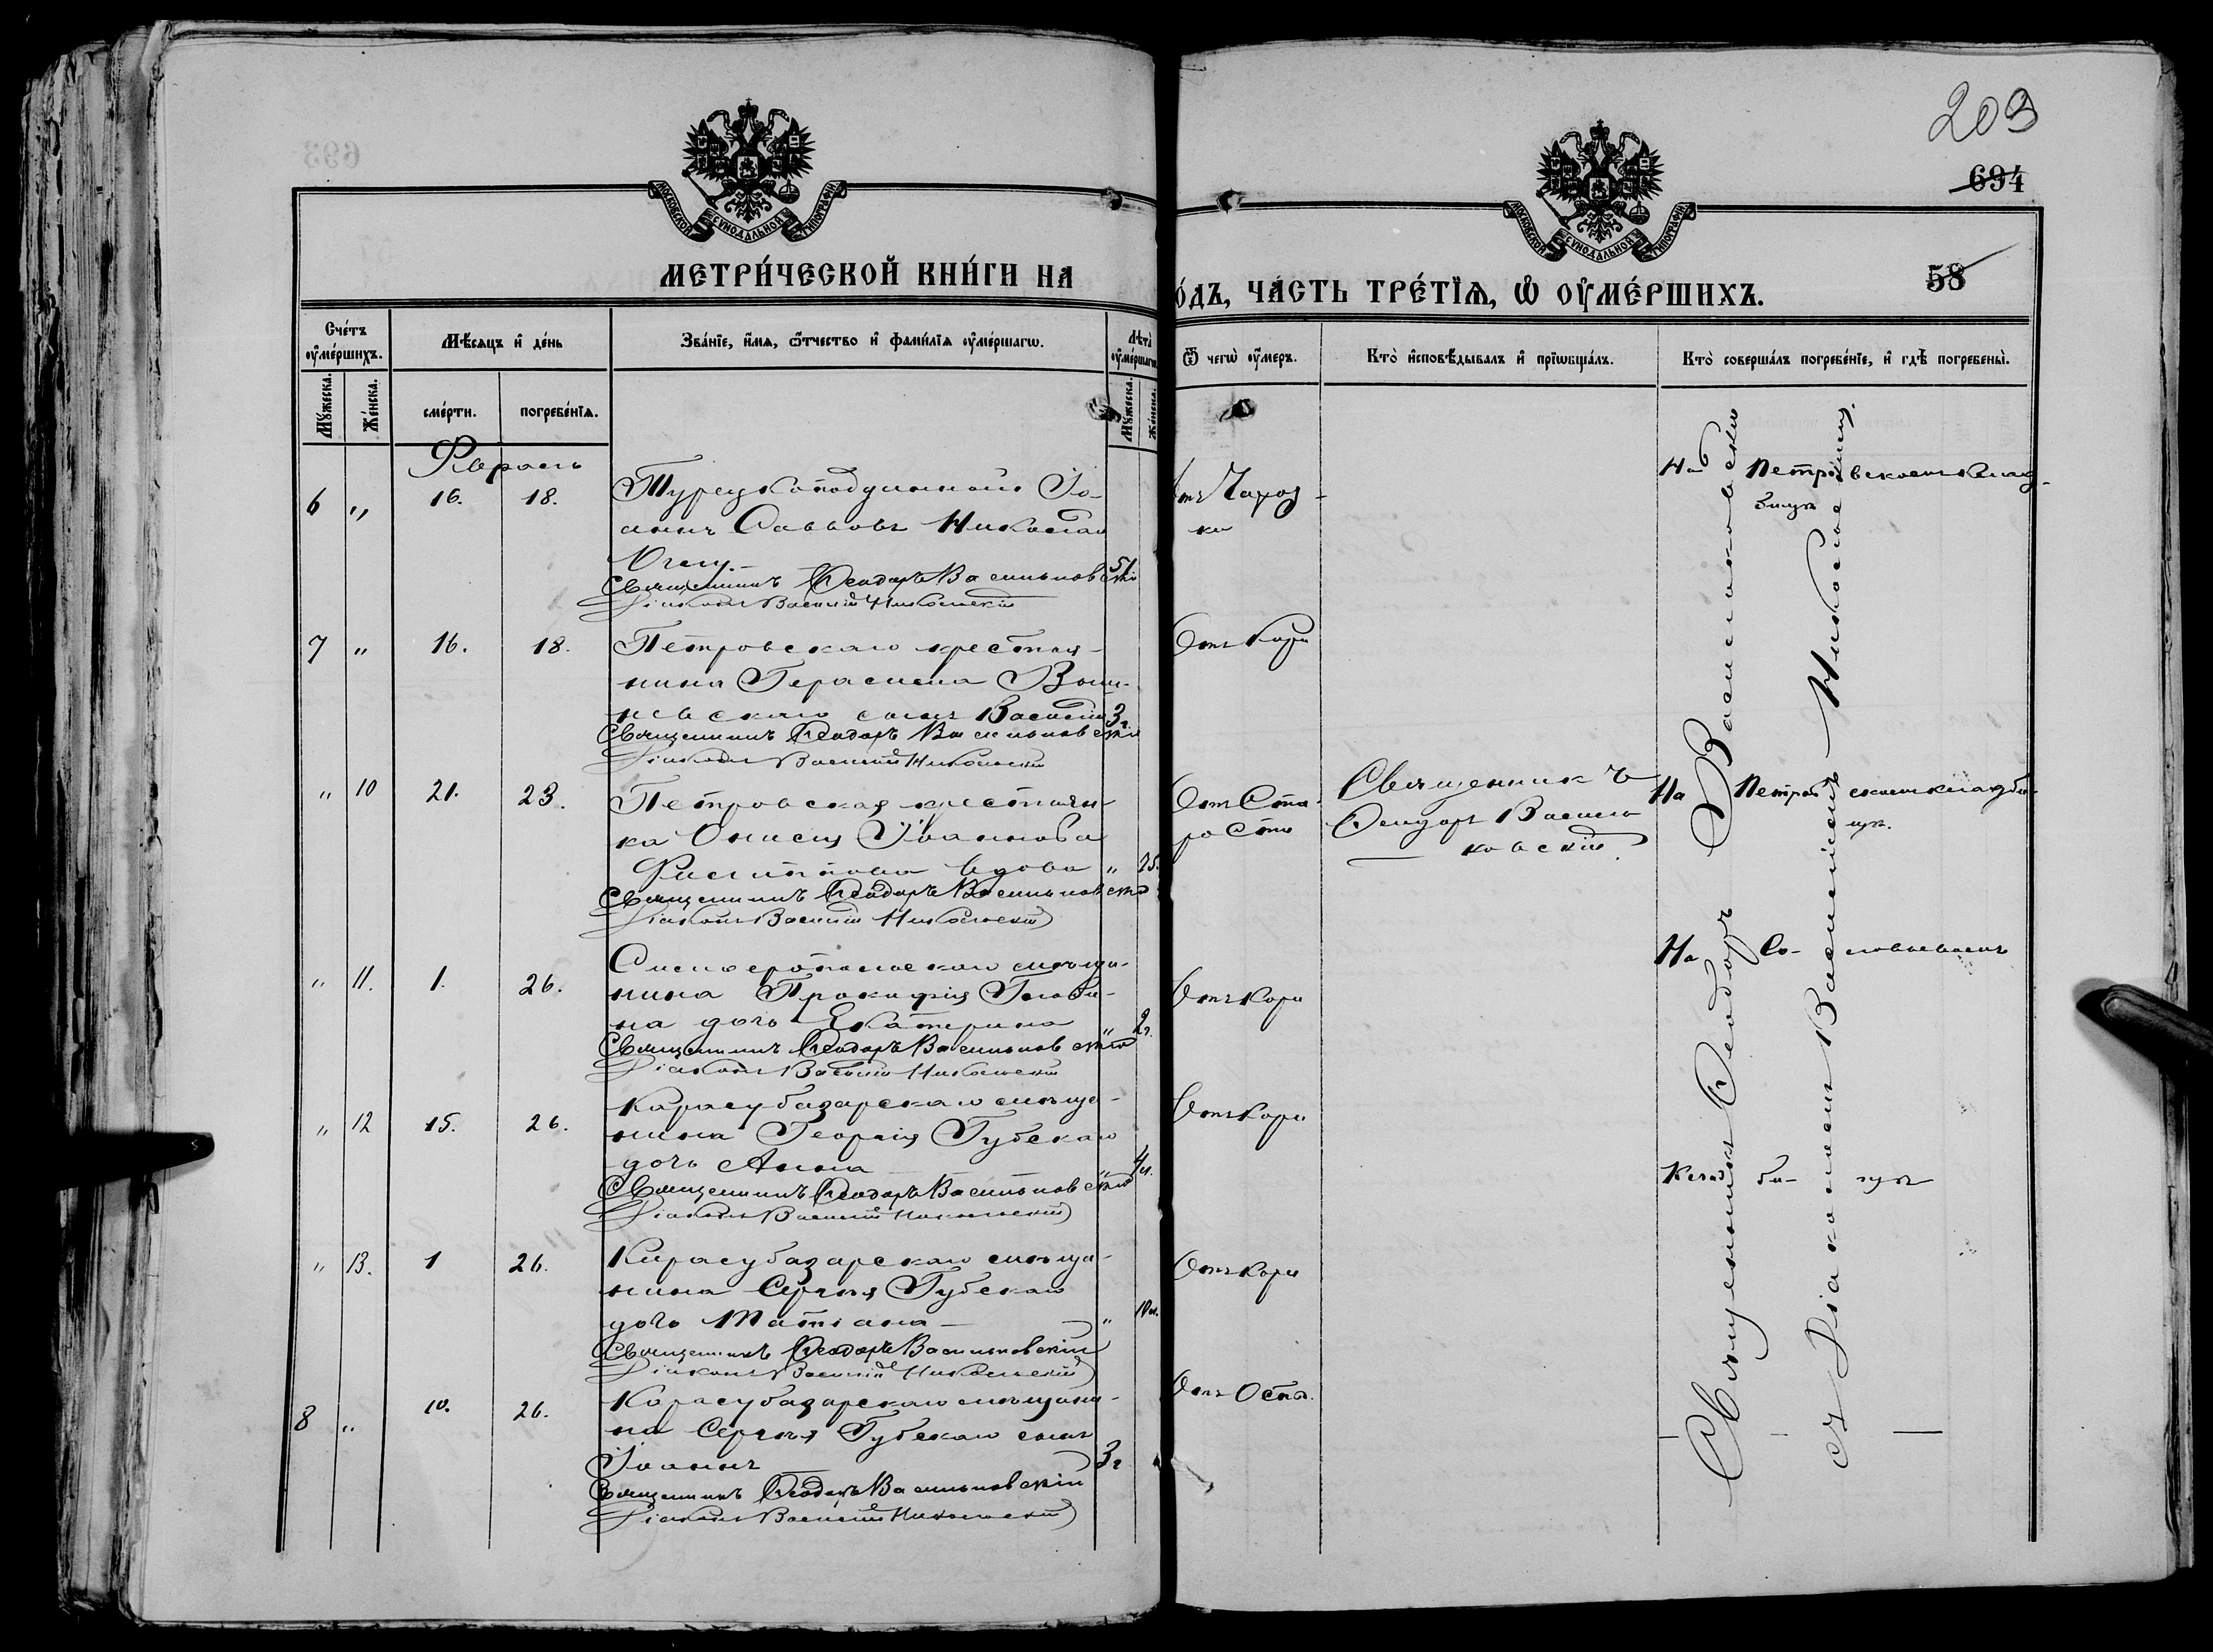 209
694
58
МОСКОВСКОЙ СѴНОДАЛЬНОЙ ТИПОГРАФІИ
МОСКОВСКОЙ СѴНОДАЛЬНОЙ ТИПОГРАФІИ
МЕТРИ́ЧЕСКОЙ КНИ́ГИ НА
О́ДЪ, ЧА́СТЬ ТРЕ́ТІѦ, Ѡ ОУ҆МЕ́РШИХЪ.
Сче́тъ ᲂу҆ме́ршихъ.
Мꙋ́жеска.
Же́нска.
Мѣ́сяцъ и҆ де́нь
сме́рти.
погребе́нїѧ.
Зва́нїе, и҆́мѧ, ѻ҆́тчество и҆ фами́лїѧ ᲂу҆ме́ршагѡ.
Лѣ́та ᲂу҆ме́ршагѡ
Мꙋ́жеска.
Же́нска.
Ѿ чегѡ̀ ᲂу҆́меръ.
Кто̀ и҆сповѣ́дывалъ и҆ прїѡбща́лъ.
Кто̀ соверша́лъ погребе́нїе, и҆ гдѣ̀ погребены̀.
Февраль
6 " 16. 18. Турецкоподданный Іо-
аннъ Саввовъ Николай
51
Священникъ Ѳеодоръ Васильковскій
Діаконъ Василій Никольскій
Отъ Чахот-
ки
На Петровскомъ клад-
бищѣ
7 " 16. 18. Петровскаго крестья-
нина Герасима
сынъ Василій 3 г.
Священникъ Ѳеодоръ Васильковскій
Діаконъ Василій Никольскій
Отъ Кори
" 10 21. 23. Петровская крестьян-
ка Онисія Іваннова
Филиппова вдова " 75.
Священникъ Ѳеодоръ Васильковскій
Діаконъ Василій Никольскій
Отъ Ста-
рости
Священникъ
Ѳеодоръ Василь
ковскій.
На Петровскомъ кладби-
щѣ.
" 11. 1. 26. Симферопольскаго мѣща-
нина Прокофія Голови-
на дочь Екатерина " 2 г.
Священникъ Ѳеодоръ Васильковскій
Діаконъ Василій Никольскій
Отъ Кори
На Со-
" 12 15. 26. Карасубазарскаго мѣща-
нина Георгія Губскаго
дочь Анна " 4 м.
Священникъ Ѳеодоръ Васильковскій
Діаконъ Василій Никольскій
Отъ Кори
Клад би- щѣ
" 13. 1 26. Карасубазарскаго мѣща-
нина Сергѣя Губскаго
дочь Татіана — " 10 м.
Священникъ Ѳеодоръ Васильковскій
Діаконъ Василій Никольскій
Отъ Кори
8 " 10. 26. Карасубазарскаго мѣщани-
на Сергѣя Губскаго сынъ
Іоаннъ 3 г. "
Священникъ Ѳеодоръ Васильковскій
Діаконъ Василій Никольскій
Отъ Оспы.
Священникъ Ѳеодоръ Васильковскій
съ Діакономъ Василіемъ Никольскимъ.